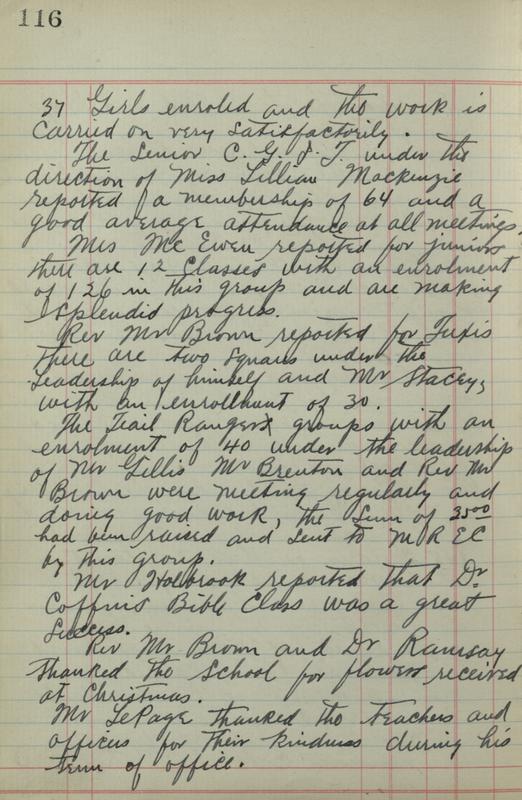 116
37 Girls enroled and the work is
carried on very satisfactorily.
The Senior C. G. I. T. under the
direction of Miss Lillian Mackenzie
reported a membership of 64 and a
good average attendance at all meetings.
Mrs McEwen reported for juniors
there are 12 Classes with an enrolment
of 126 in this group and are making
splendid progress.
Rev Mr Brown reported for Tuxis
there are two squares under the
leadership of himself and Mr Stacey,
with an enrollment of 30.
The Trail Rangers groups with an
enrolment of 40 under the leadership
of Mr Gillis Mr Brenton and Rev Mr
Brown were meeting regularly and
doing good work, the sum of 35.00
had been raised and sent to M R E C
by this group.
Mr Holbrook reported that Dr
Coffins Bible Class was a great
success.
Rev Mr Brown and Dr Ramsay
thanked the School for flowers received
at Christmas.
Mr LePage thanked the teachers and
officers for their kindness during his
term of office.